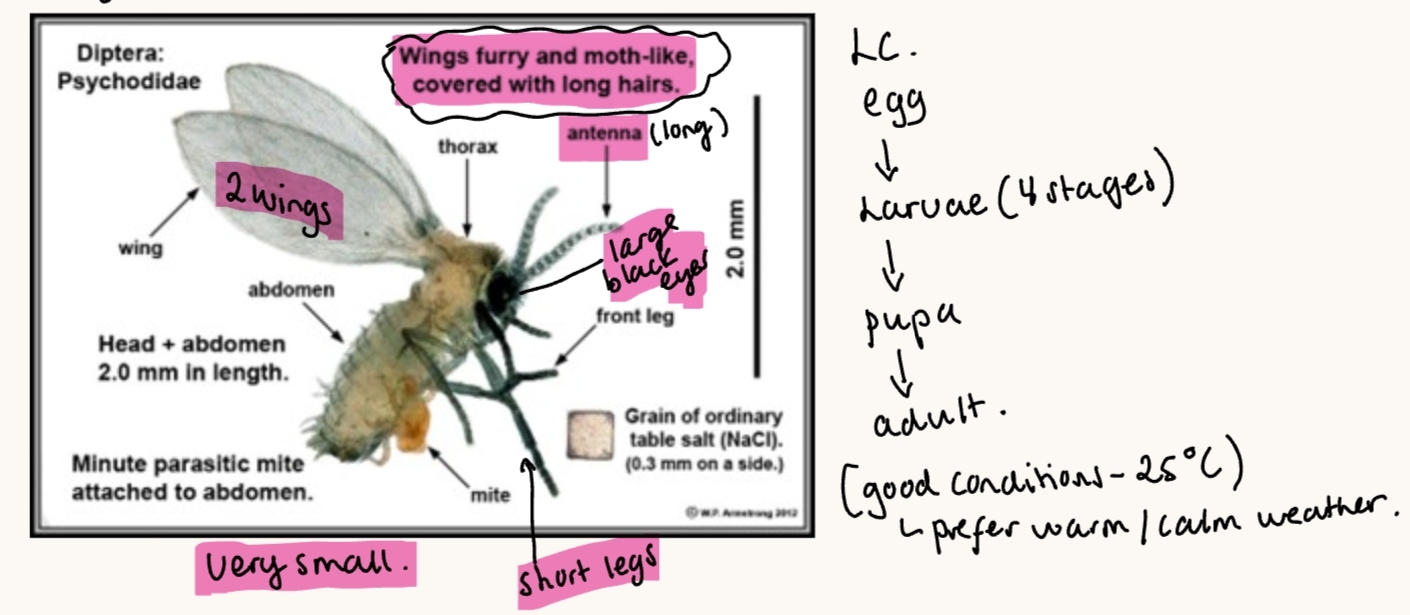 Diptera:
Psychodidae
Wings furry and moth-like,
covered with long hairs.
antenna (long)
thorax
2 wings
wing
large
black
eyes
2.0 mm
abdomen
front leg
Head + abdomen
2.0 mm in length.
Grain of ordinary
table salt (NaCl).
(0.3 mm on a side.)
Minute parasitic mite
attached to abdomen.
mite
© W.P. Armstrong 2012
very small.
short legs
LC.
egg
↓
Larvae (4 stages)
↓
pupa
↓
adult.
(good conditions - 25°C)
↳ prefer warm / calm weather.